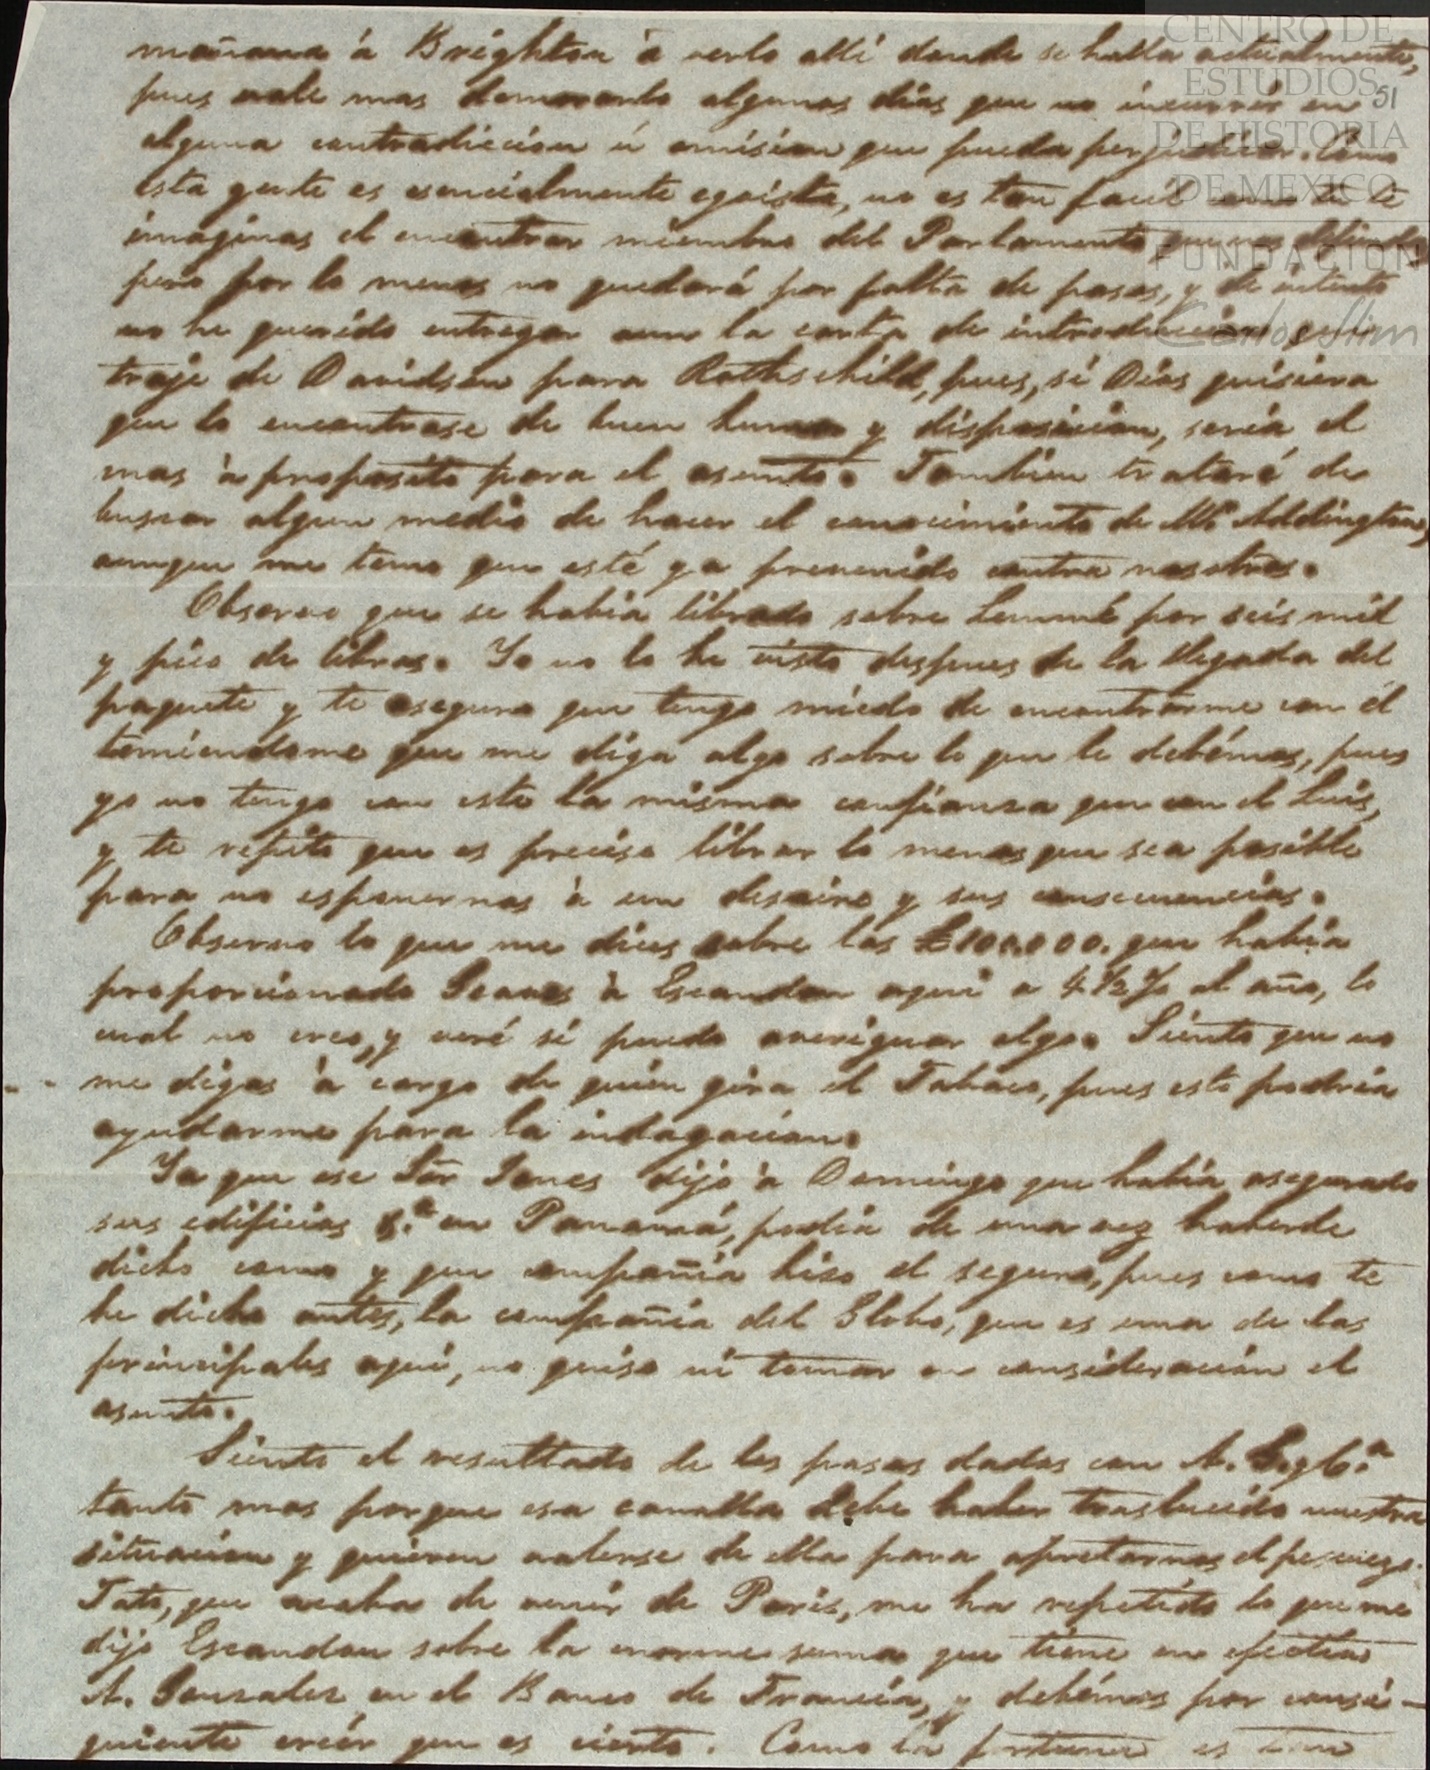 CENTRO DE
ESTUDIOS
DE HISTORIA
DE MEXICO
FUNDACION
Carlos Slim
51
mañana à Brighton à verlo allí donde se halla actualmente,
pues vale mas demorarlo algunos dias que no incurrir en
alguna contradiccion ú omision que pueda perjudicar. Como
esta gente es esencialmente egoista, no es tan facil como tu te
imaginas el encontrar miembros del Parlamento que nos
pero por lo menos no quedará por falta de pasos, y de intento
no he querido entregar aun la carta de introduccion que
traje de Davidson para Rothschild, pues, si Dios quisiera
que lo encontrase de buen humor y disposicion, seria el
mas à proposito para el asunto. Tambien trataré de
buscar algun medio de hacer el conocimiento de Mr Addington,
aunque me temo que esté ya prevenido contra nosotros.
Observo que se habia librado sobre Lemmé por seis mil
y pico de libras. Yo no lo he visto despues de la llegada del
paquete y te aseguro que tengo miedo de encontrarme con él
temiendome que me diga algo sobre lo que le debémos, pues
yo no tengo con este la misma confianza que con el Luis,
y te repito que es preciso librar lo menos que sea posible
para no esponernos à un desaire y sus consecuencias.
Observo lo que me dices sobre las £100.000. que habia
proporcionado Graves à Escandon aqui a 4½% al año, lo
cual no creo, y veré si puedo averiguar algo. Siento que no
me digas à cargo de quién gira el Tabaco, pues esto podria
ayudarme para la indagacion.
Ya que ese Sōr Jones dijo à Domingo que habia asegurado
sus edificios &.ª en Panamá, podia de una vez haberle
dicho como y que compañia hizo el seguro, pues como te
he dicho antes, la compañia del Globo, que es una de las
principales aqui, no quiso ni tomar en consideracion el
asunto.
Siento el resultado de los pasos dados con A. G. y C.ª
tanto mas porque esa canalla debe haber traslucido nuestra
situacion y quieren valerse de ella para apretarnos el pescuezo.
Tato, que acaba de venir de Paris, me ha repetido lo que me
dijo Escandon sobre la enorme suma que tiene en efectivo
A. Gonzalez en el Banco de Francia, y debémos por consi-
guiente creér que es cierto. Como la fortuna es tan